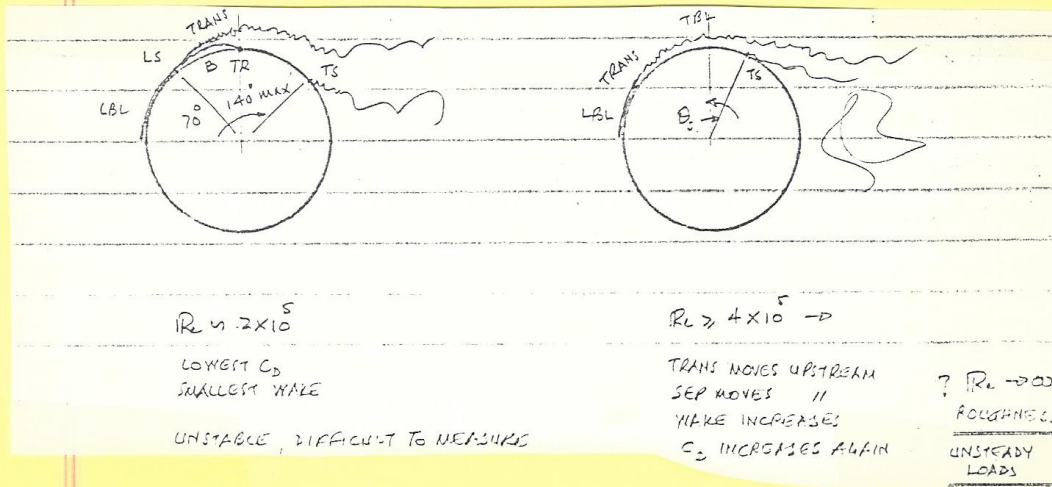 TRANS
LS
B TR
TS
LBL
70°
140° MAX
Re ~ 2×10⁵
LOWEST C_D
SMALLEST WAKE
UNSTABLE, DIFFICULT TO MEASURE
TBL
TRANS
TS
LBL
Re ⩾ 4×10⁵ →
TRANS MOVES UPSTREAM
SEP MOVES "
WAKE INCREASES
C_D INCREASES AGAIN
? Re → ∞
ROUGHNESS
UNSTEADY
LOADS